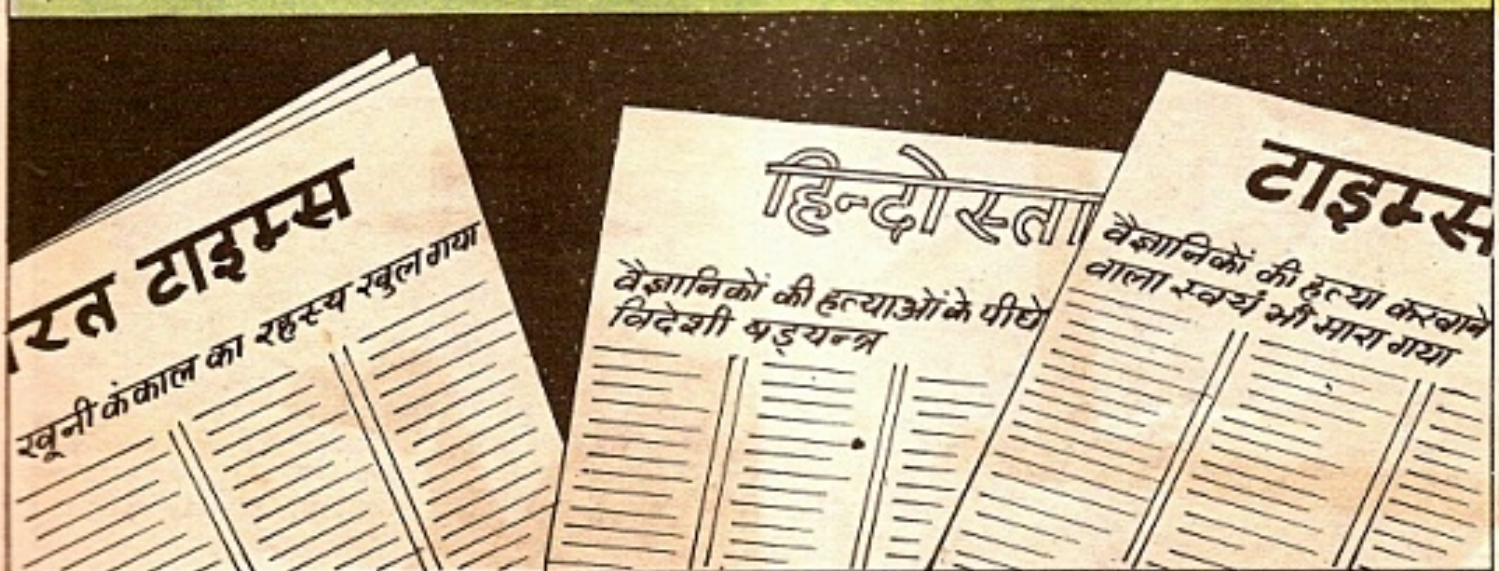 रत टाइम्स
खूनी कंकाल का रहस्य खुल गया
हिन्दोस्ता
वैज्ञानिकों की हत्याओं के पीछे
विदेशी षड्यन्त्र
टाइम्स
वैज्ञानिकों की हत्या करवाने
वाला स्वयं भी मारा गया